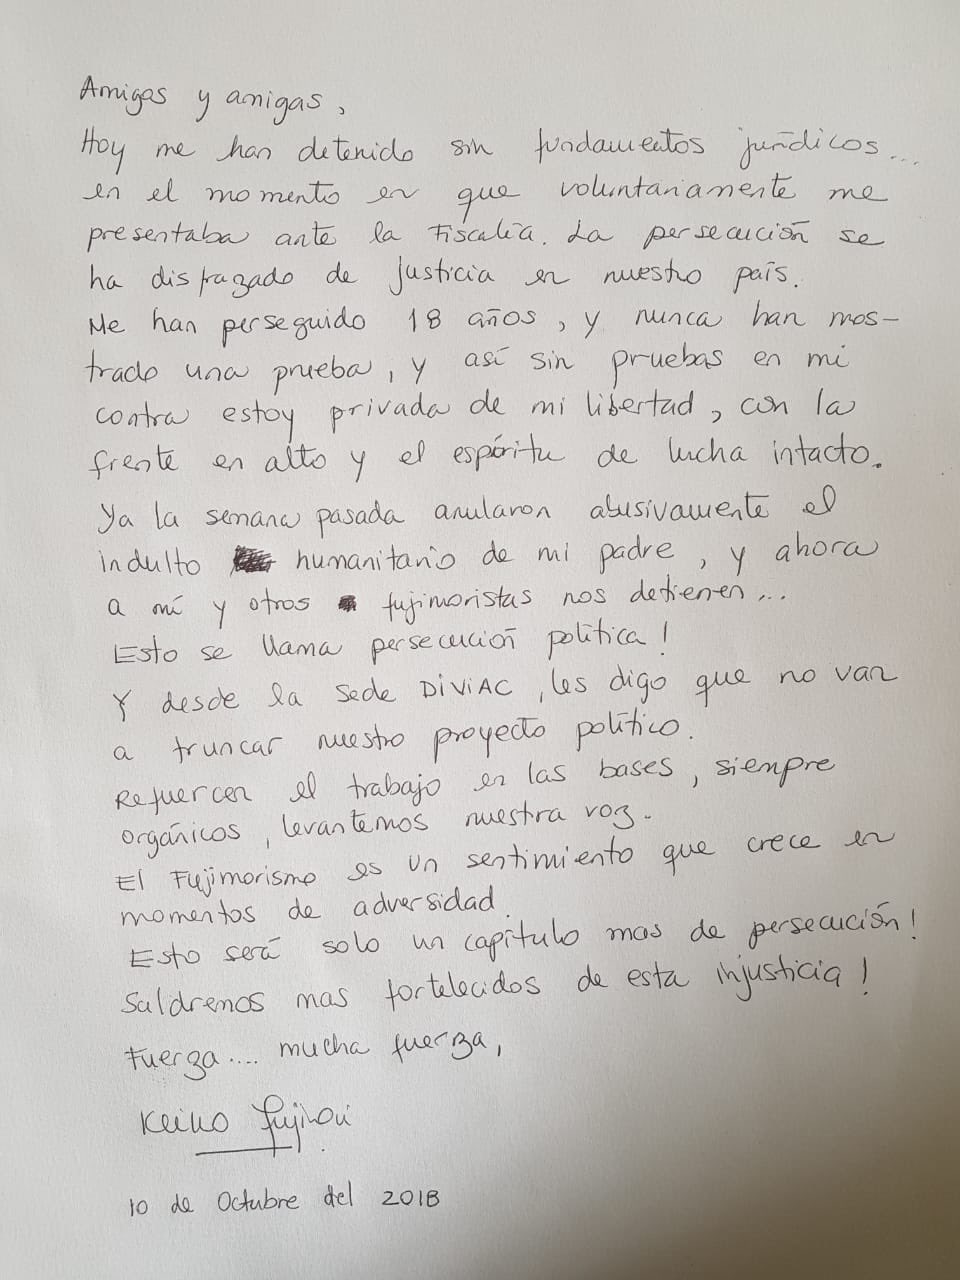 Amigos y amigas,
Hoy me han detenido sin fundamentos jurídicos...
en el momento en que voluntariamente me
presentaba ante la Fiscalía. La persecución se
ha disfrazado de justicia en nuestro país.
Me han perseguido 18 años, y nunca han mos-
trado una prueba, y así sin pruebas en mi
contra estoy privada de mi libertad, con la
frente en alto y el espíritu de lucha intacto.
Ya la semana pasada anularon abusivamente el
indulto humanitario de mi padre, y ahora
a mí y otros fujimoristas nos detienen...
Esto se llama persecución política!
Y desde la sede DIVIAC, les digo que no van
a truncar nuestro proyecto político.
Refuercen el trabajo en las bases, siempre
orgánicos, levantemos nuestra voz.
El Fujimorismo es un sentimiento que crece en
momentos de adversidad.
Esto será solo un capítulo mas de persecución!
Saldremos mas fortelecidos de esta injusticia!
Fuerza.... mucha fuerza,
Keiko Fujimori
10 de Octubre del 2018